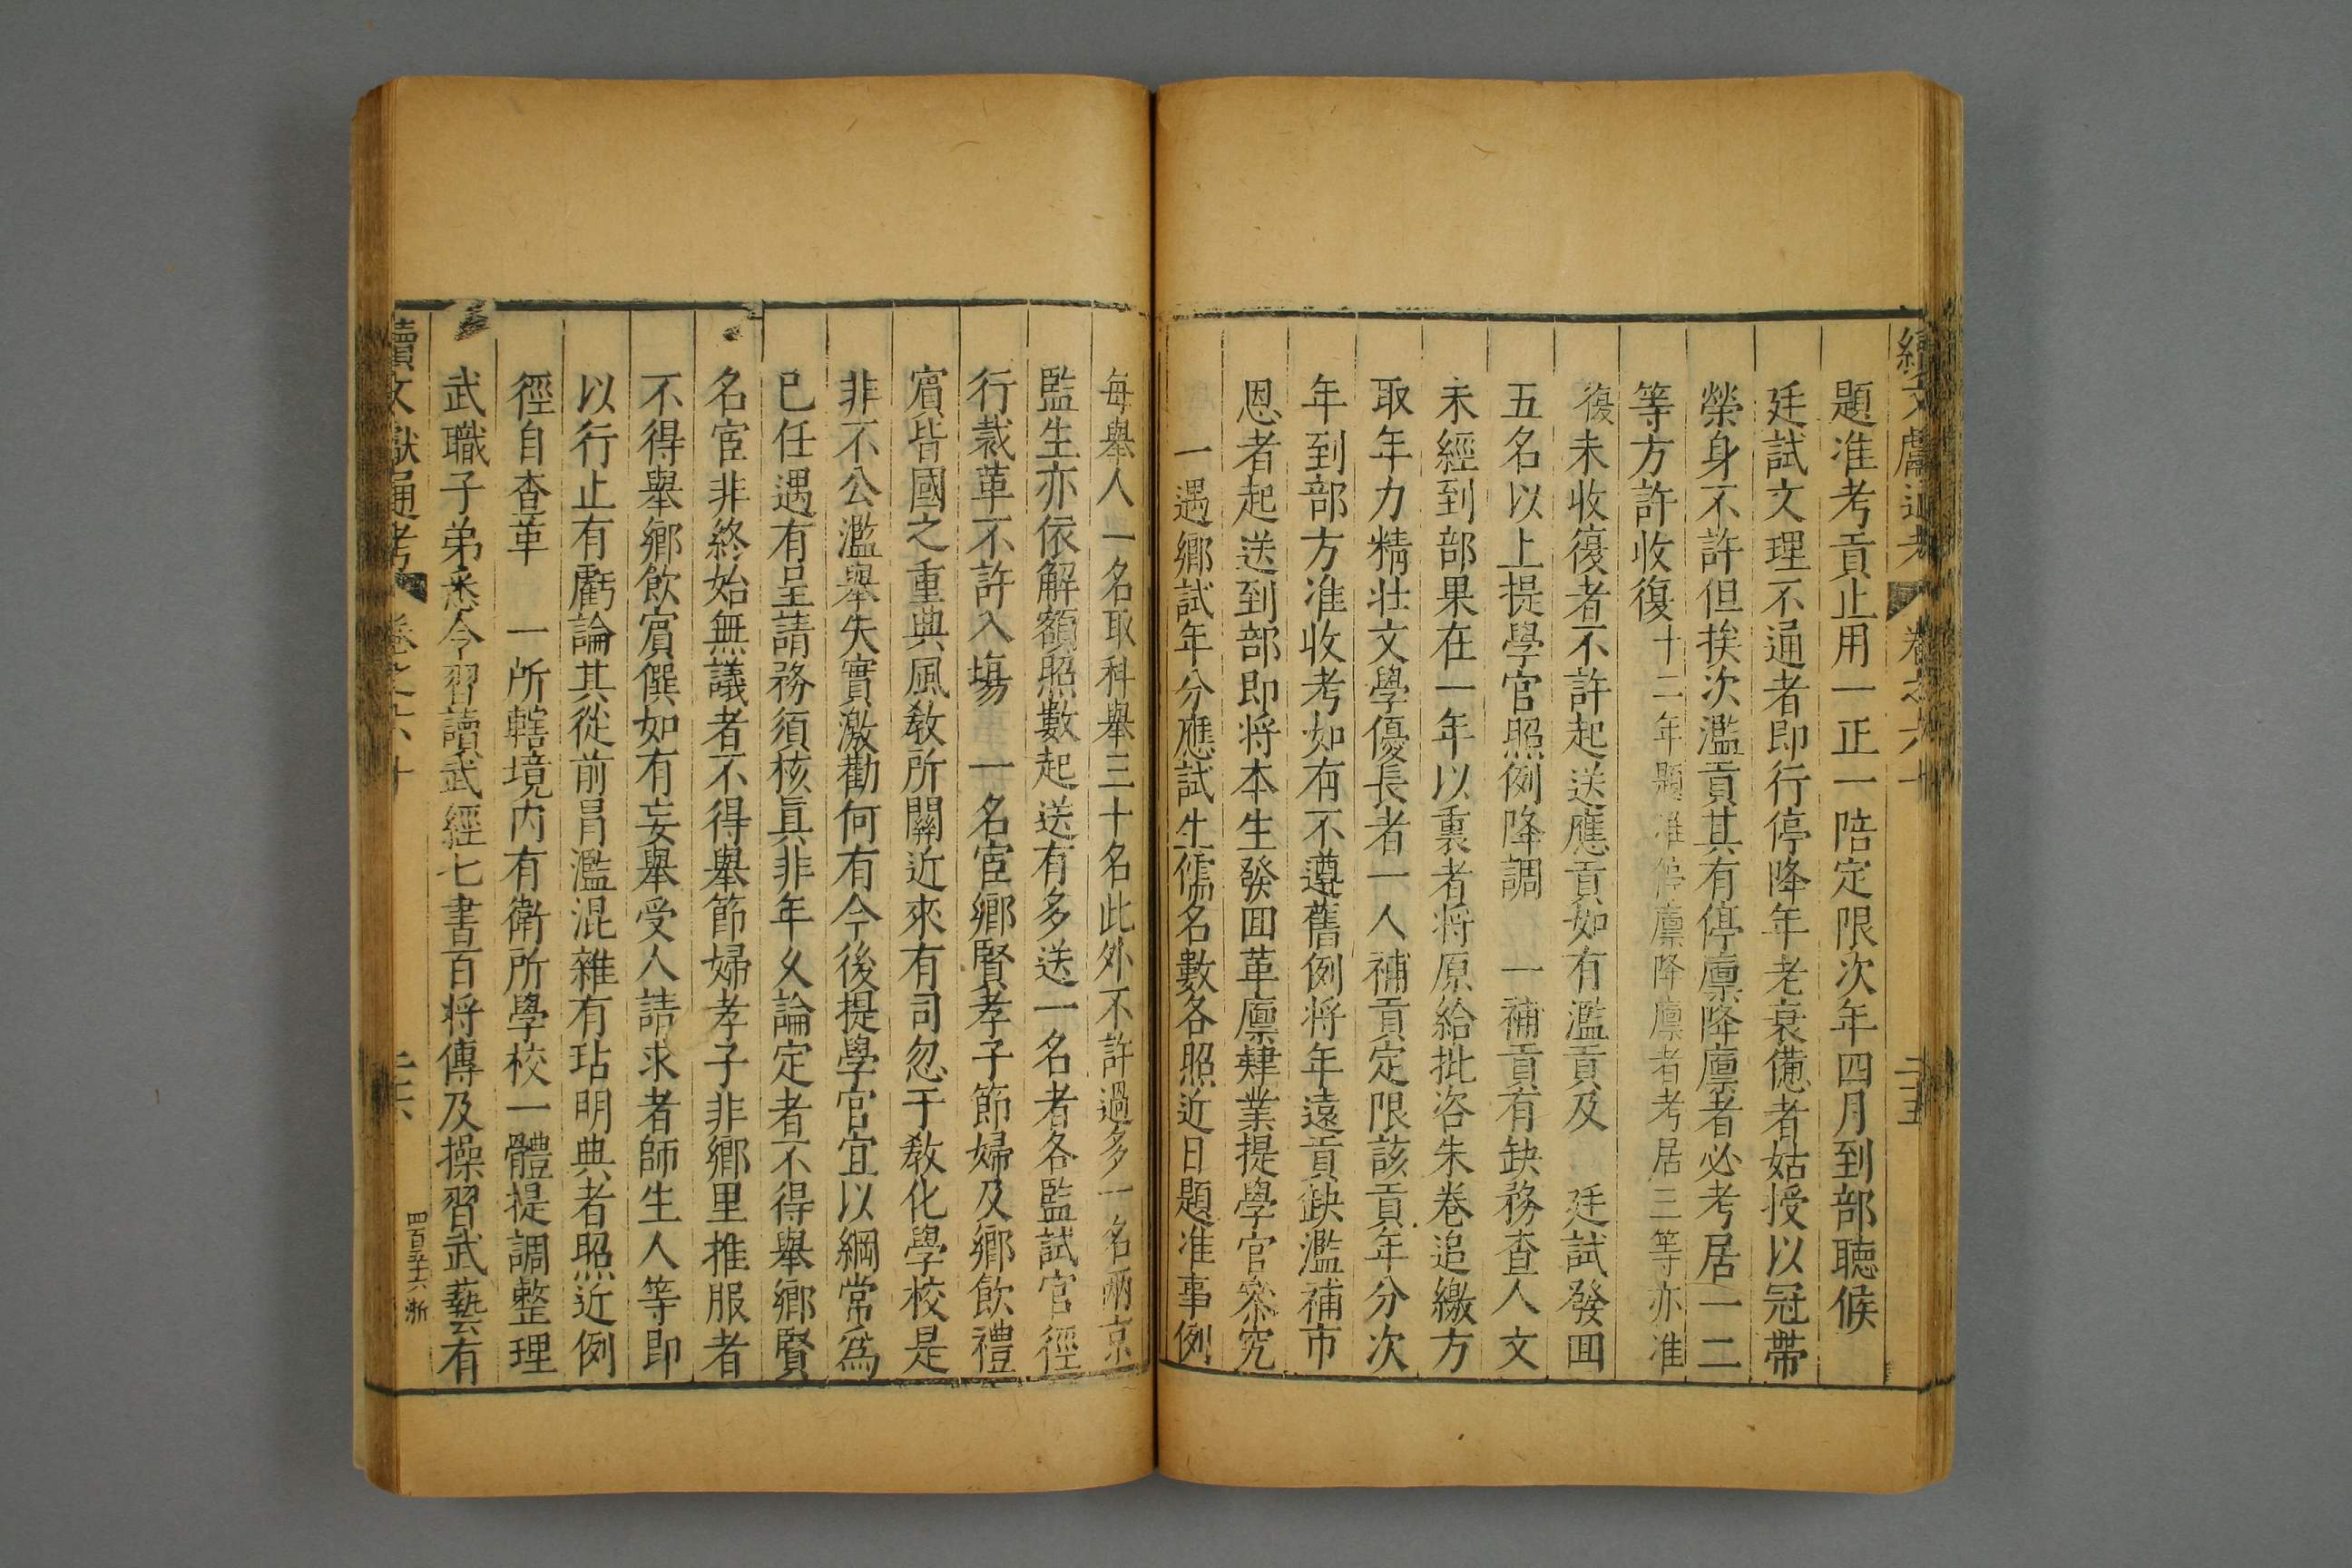 續文獻通考 卷之六十 二十五
題准考貢止用一正一陪定限次年四月到部聽候
廷試文理不通者即行停降年老衰憊者姑授以冠帶
榮身不許但挨次濫貢其有停廩降廩者必考居一二
等方許收復十二年題准停廩降廩者考居三等亦准
復未收復者不許起送應貢如有濫貢及 廷試發回
五名以上提學官照例降調 一補貢有缺務查人文
未經到部果在一年以裏者將原給批咨朱卷追繳方
取年力精壯文學優長者一人補貢定限該貢年分次
年到部方准收考如有不遵舊例將年遠貢缺濫補市
恩者起送到部即將本生發回革廩肄業提學官叅究
一遇鄉試年分應試生儒名數各照近日題准事例
每舉人一名取科舉三十名此外不許過多一名兩京
監生亦依解額照數起送有多送一名者各監試官徑
行裁革不許入場 一名宦鄉賢孝子節婦及鄉飲禮
賓皆國之重典風敎所關近來有司忽于敎化學校是
非不公濫舉失實激勸何有今後提學官宜以綱常爲
已任遇有呈請務須核眞非年久論定者不得舉鄉賢
名宦非終始無議者不得舉節婦孝子非鄉里推服者
不得舉鄉飲賓僎如有妄舉受人請求者師生人等即
以行止有虧論其從前冐濫混雜有玷明典者照近例
徑自查革 一所轄境内有衛所學校一體提調整理
武職子弟悉令習讀武經七書百將傳及操習武藝有
續文獻通考 卷之六十 二十六
四百五十六 浙